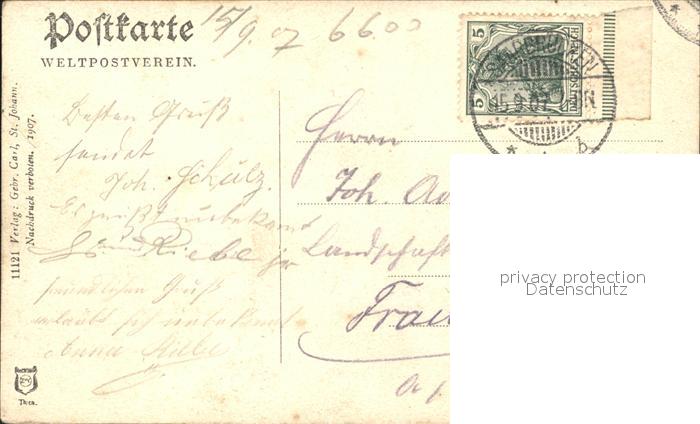 Postkarte
WELTPOSTVEREIN.
15/9.07 6600
5 5
SAARBRÜCKEN
15.9.07
* b
11121 Verlag: Gebr. Carl, St. Johann.
Nachdruck verboten. /1907.
Besten Gruß
sendet
Joh. Schulz.
Es grüßt unbekannt
freundlichen Gruß
erlaubt sich unbekannt
Anna
Herrn
Joh. Ad
Landschaft
Frau
a/
privacy protection
Datenschutz